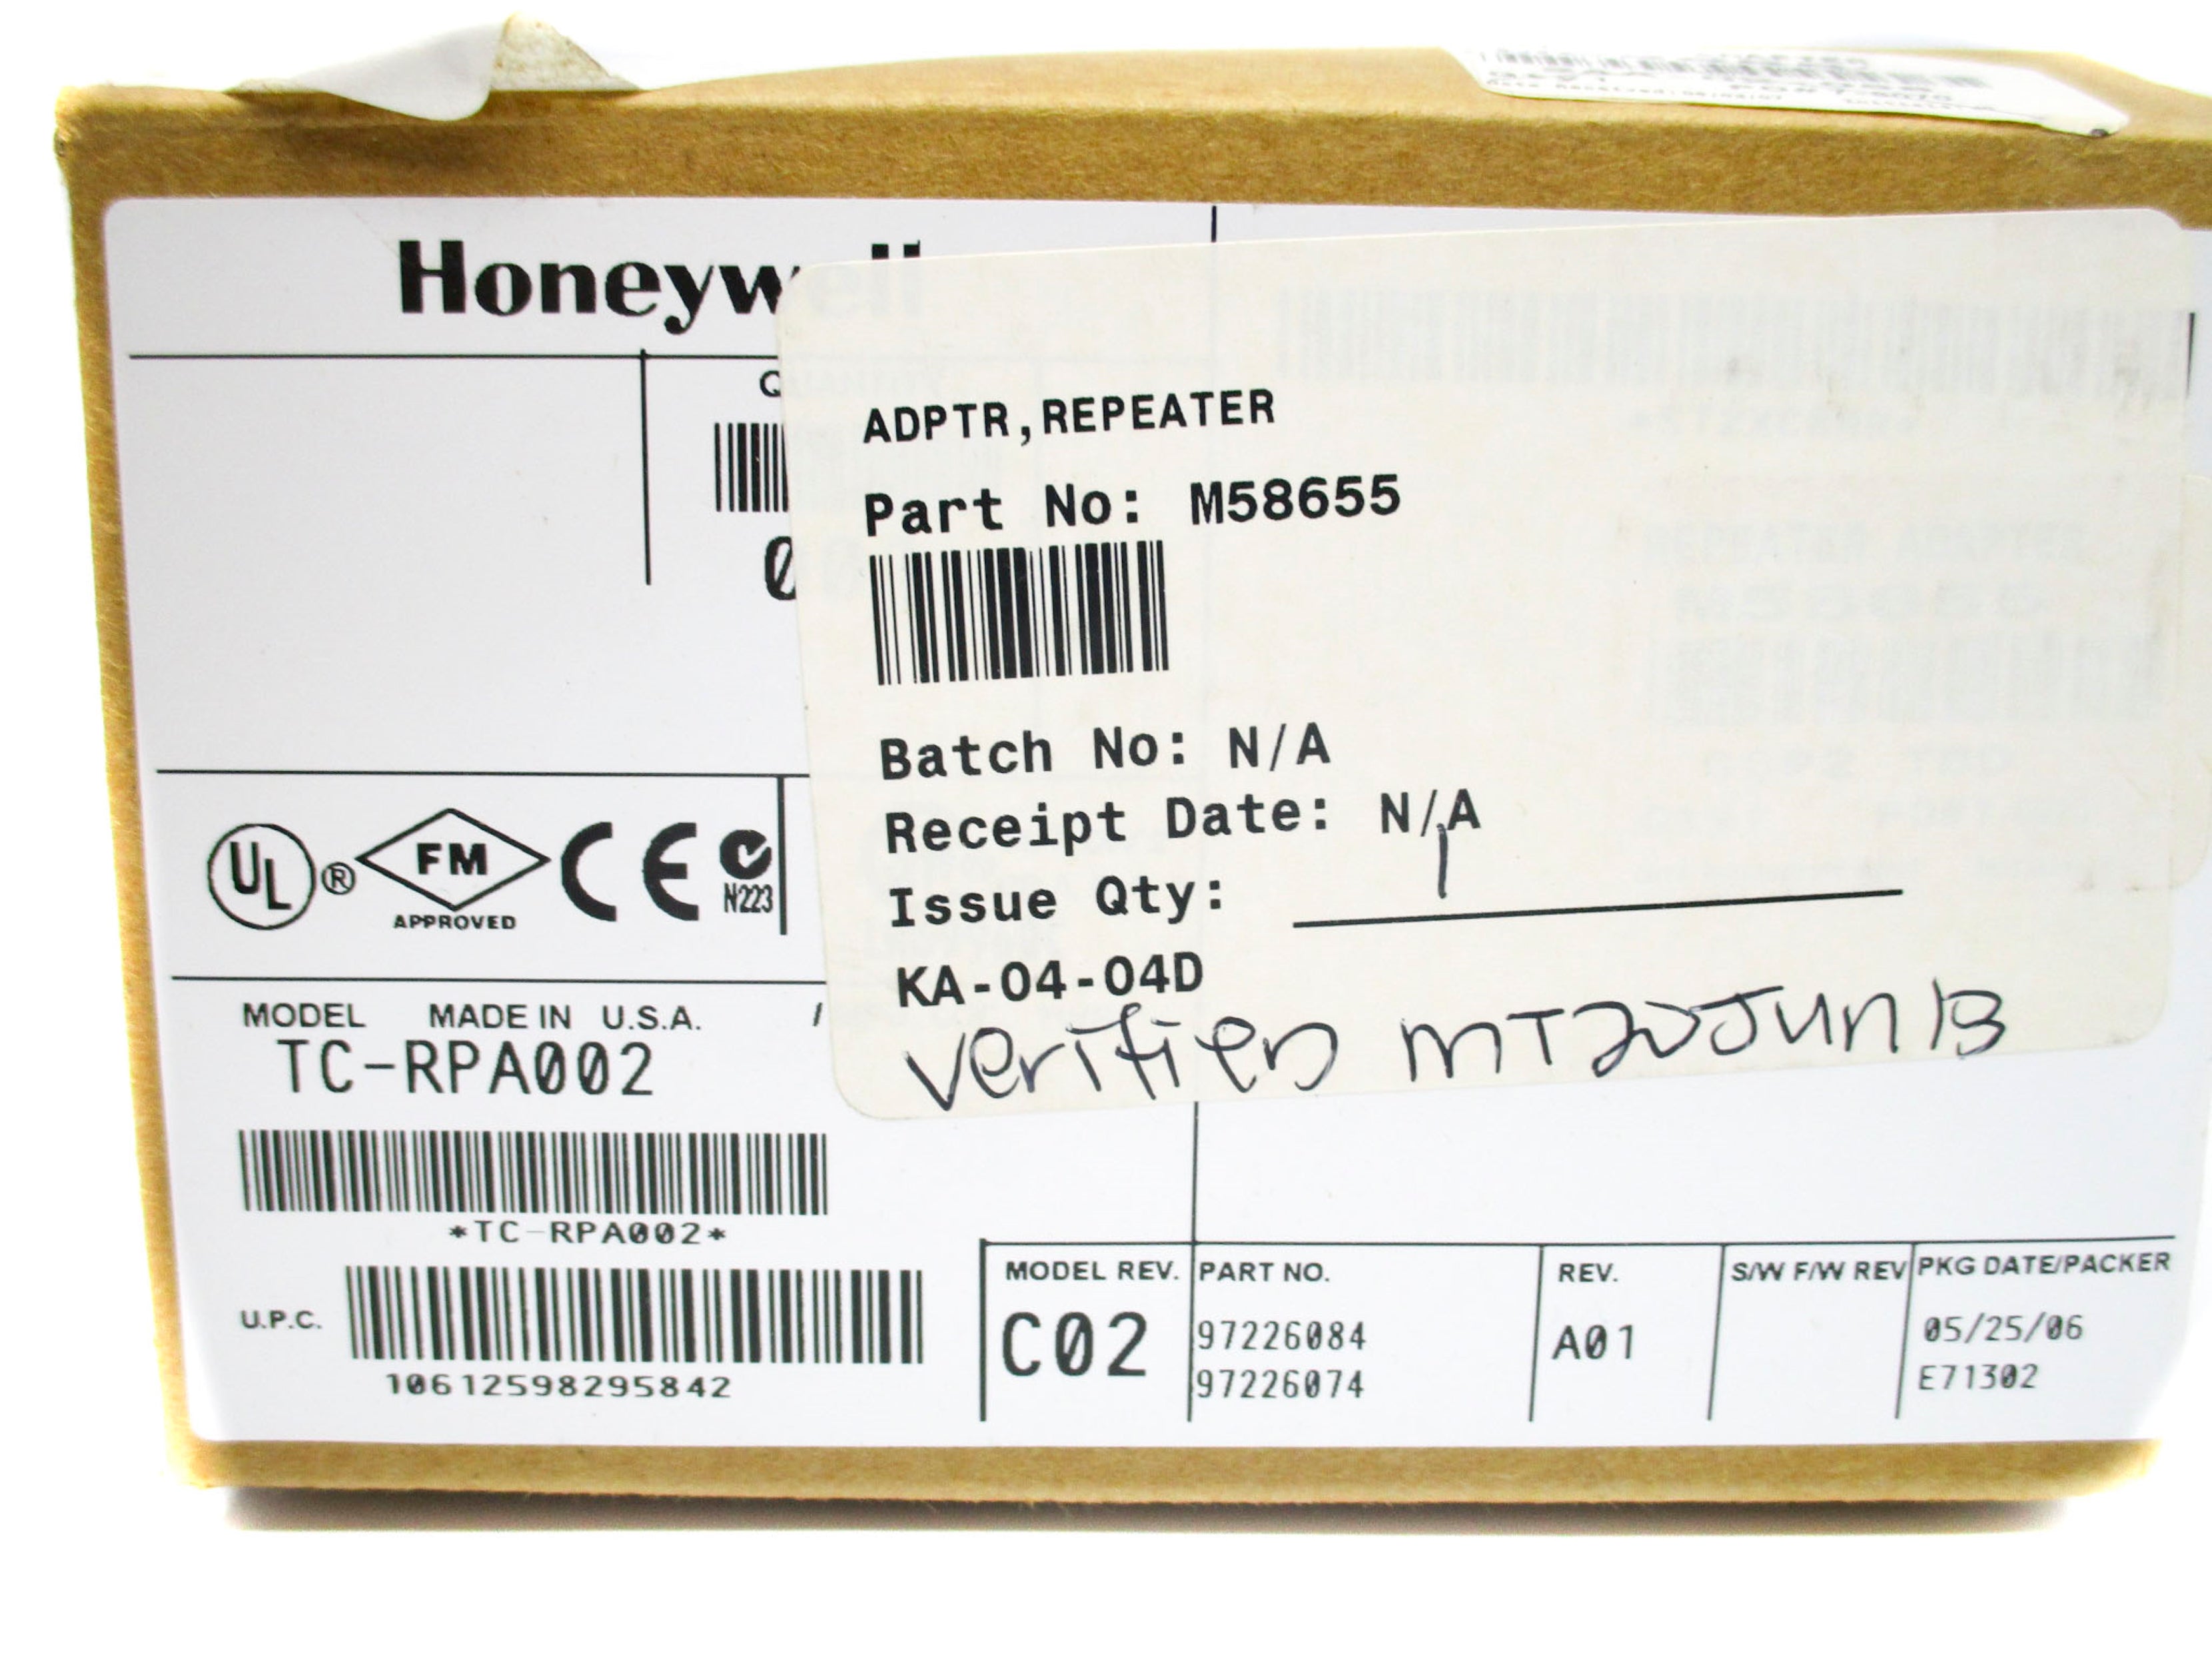 Honeywell
ADPTR,REPEATER
Part No: M58655
Batch No: N/A
Receipt Date: N/A
Issue Qty: 1
KA-04-04D
Verified MT 20 Jun 13
UL ®
FM
APPROVED
CE
N223
MODEL MADE IN U.S.A.
TC-RPA002
*TC-RPA002*
U.P.C.
10612598295842
MODEL REV. PART NO. REV. S/W F/W REV PKG DATE/PACKER
C02 97226084 A01 05/25/06
97226074 E71302